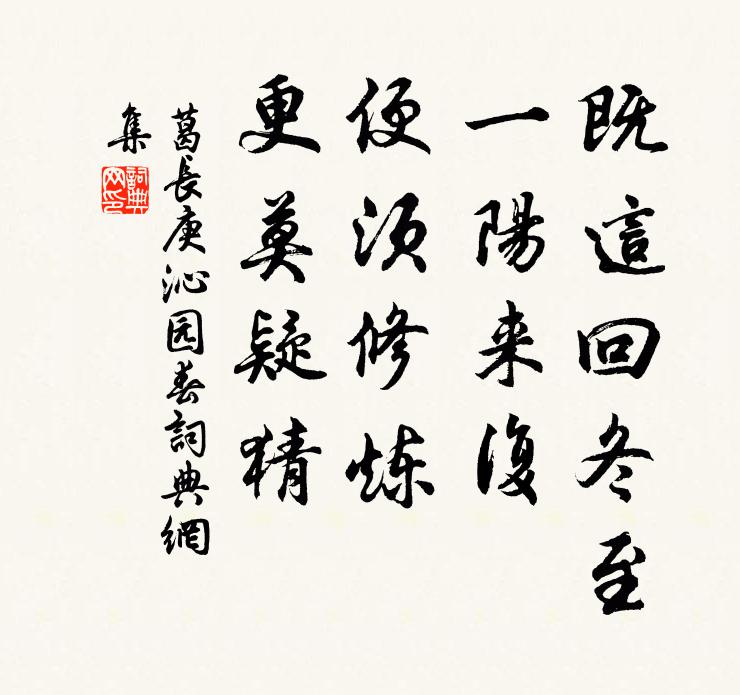 既這回冬至
一陽来復
便须修炼
更莫疑猜
葛長庚沁园春詞典網
集
詞典
网印